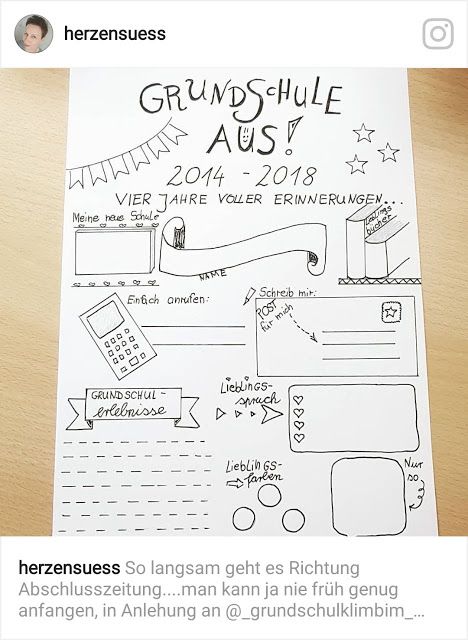 herzensuess
GRUNDSCHULE
AUS!
2014 - 2018
VIER JAHRE VOLLER ERINNERUNGEN...
Meine neue Schule
Lieblings
bücher
NAME
Einfach anrufen:
Schreib mir:
POST
für mich
GRUNDSCHUL-
erlebnisse
LIEBLINGS-
spruch
LIEBLINGS-
farben
Nur
so
herzensuess So langsam geht es Richtung
Abschlusszeitung....man kann ja nie früh genug
anfangen, in Anlehung an @_grundschulklimbim_...